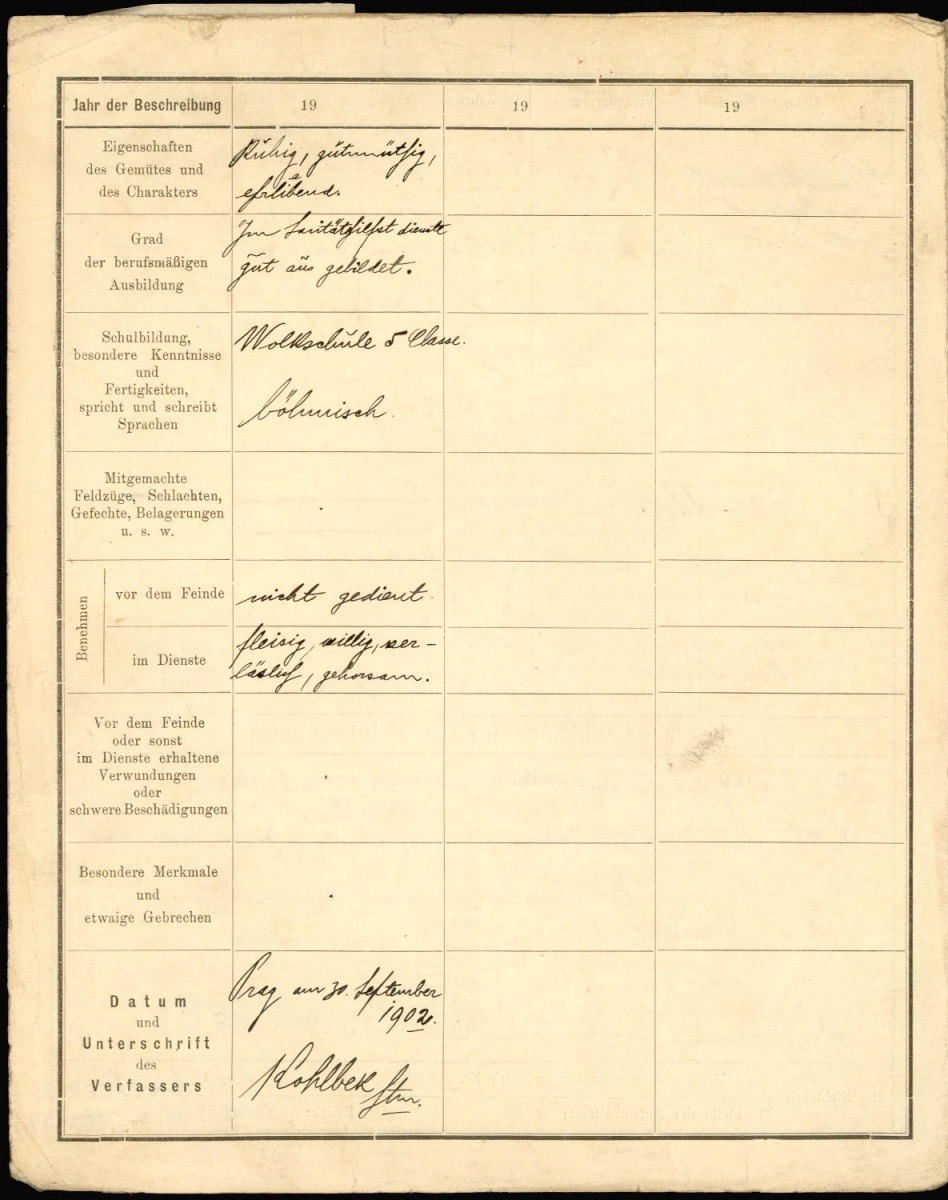 Jahr der Beschreibung 19 19 19
Eigenschaften
des Gemütes und
des Charakters
Ruhig, gutmüthig,
efrliebend.
Grad
der berufsmäßigen
Ausbildung
Im Sanitätshilfst dienste
gut aus gebildet.
Schulbildung,
besondere Kenntnisse
und
Fertigkeiten,
spricht und schreibt
Sprachen
Wolkschule 5 Classe.
böhmisch.
Mitgemachte
Feldzüge, Schlachten,
Gefechte, Belagerungen
u. s. w.
Benehmen
vor dem Feinde
nicht gedient.
im Dienste
fleisig, willig, ver-
läslich, gehorsam.
Vor dem Feinde
oder sonst
im Dienste erhaltene
Verwundungen
oder
schwere Beschädigungen
Besondere Merkmale
und
etwaige Gebrechen
Datum
und
Unterschrift
des
Verfassers
Prag am 30. September
1902.
Kohlbek